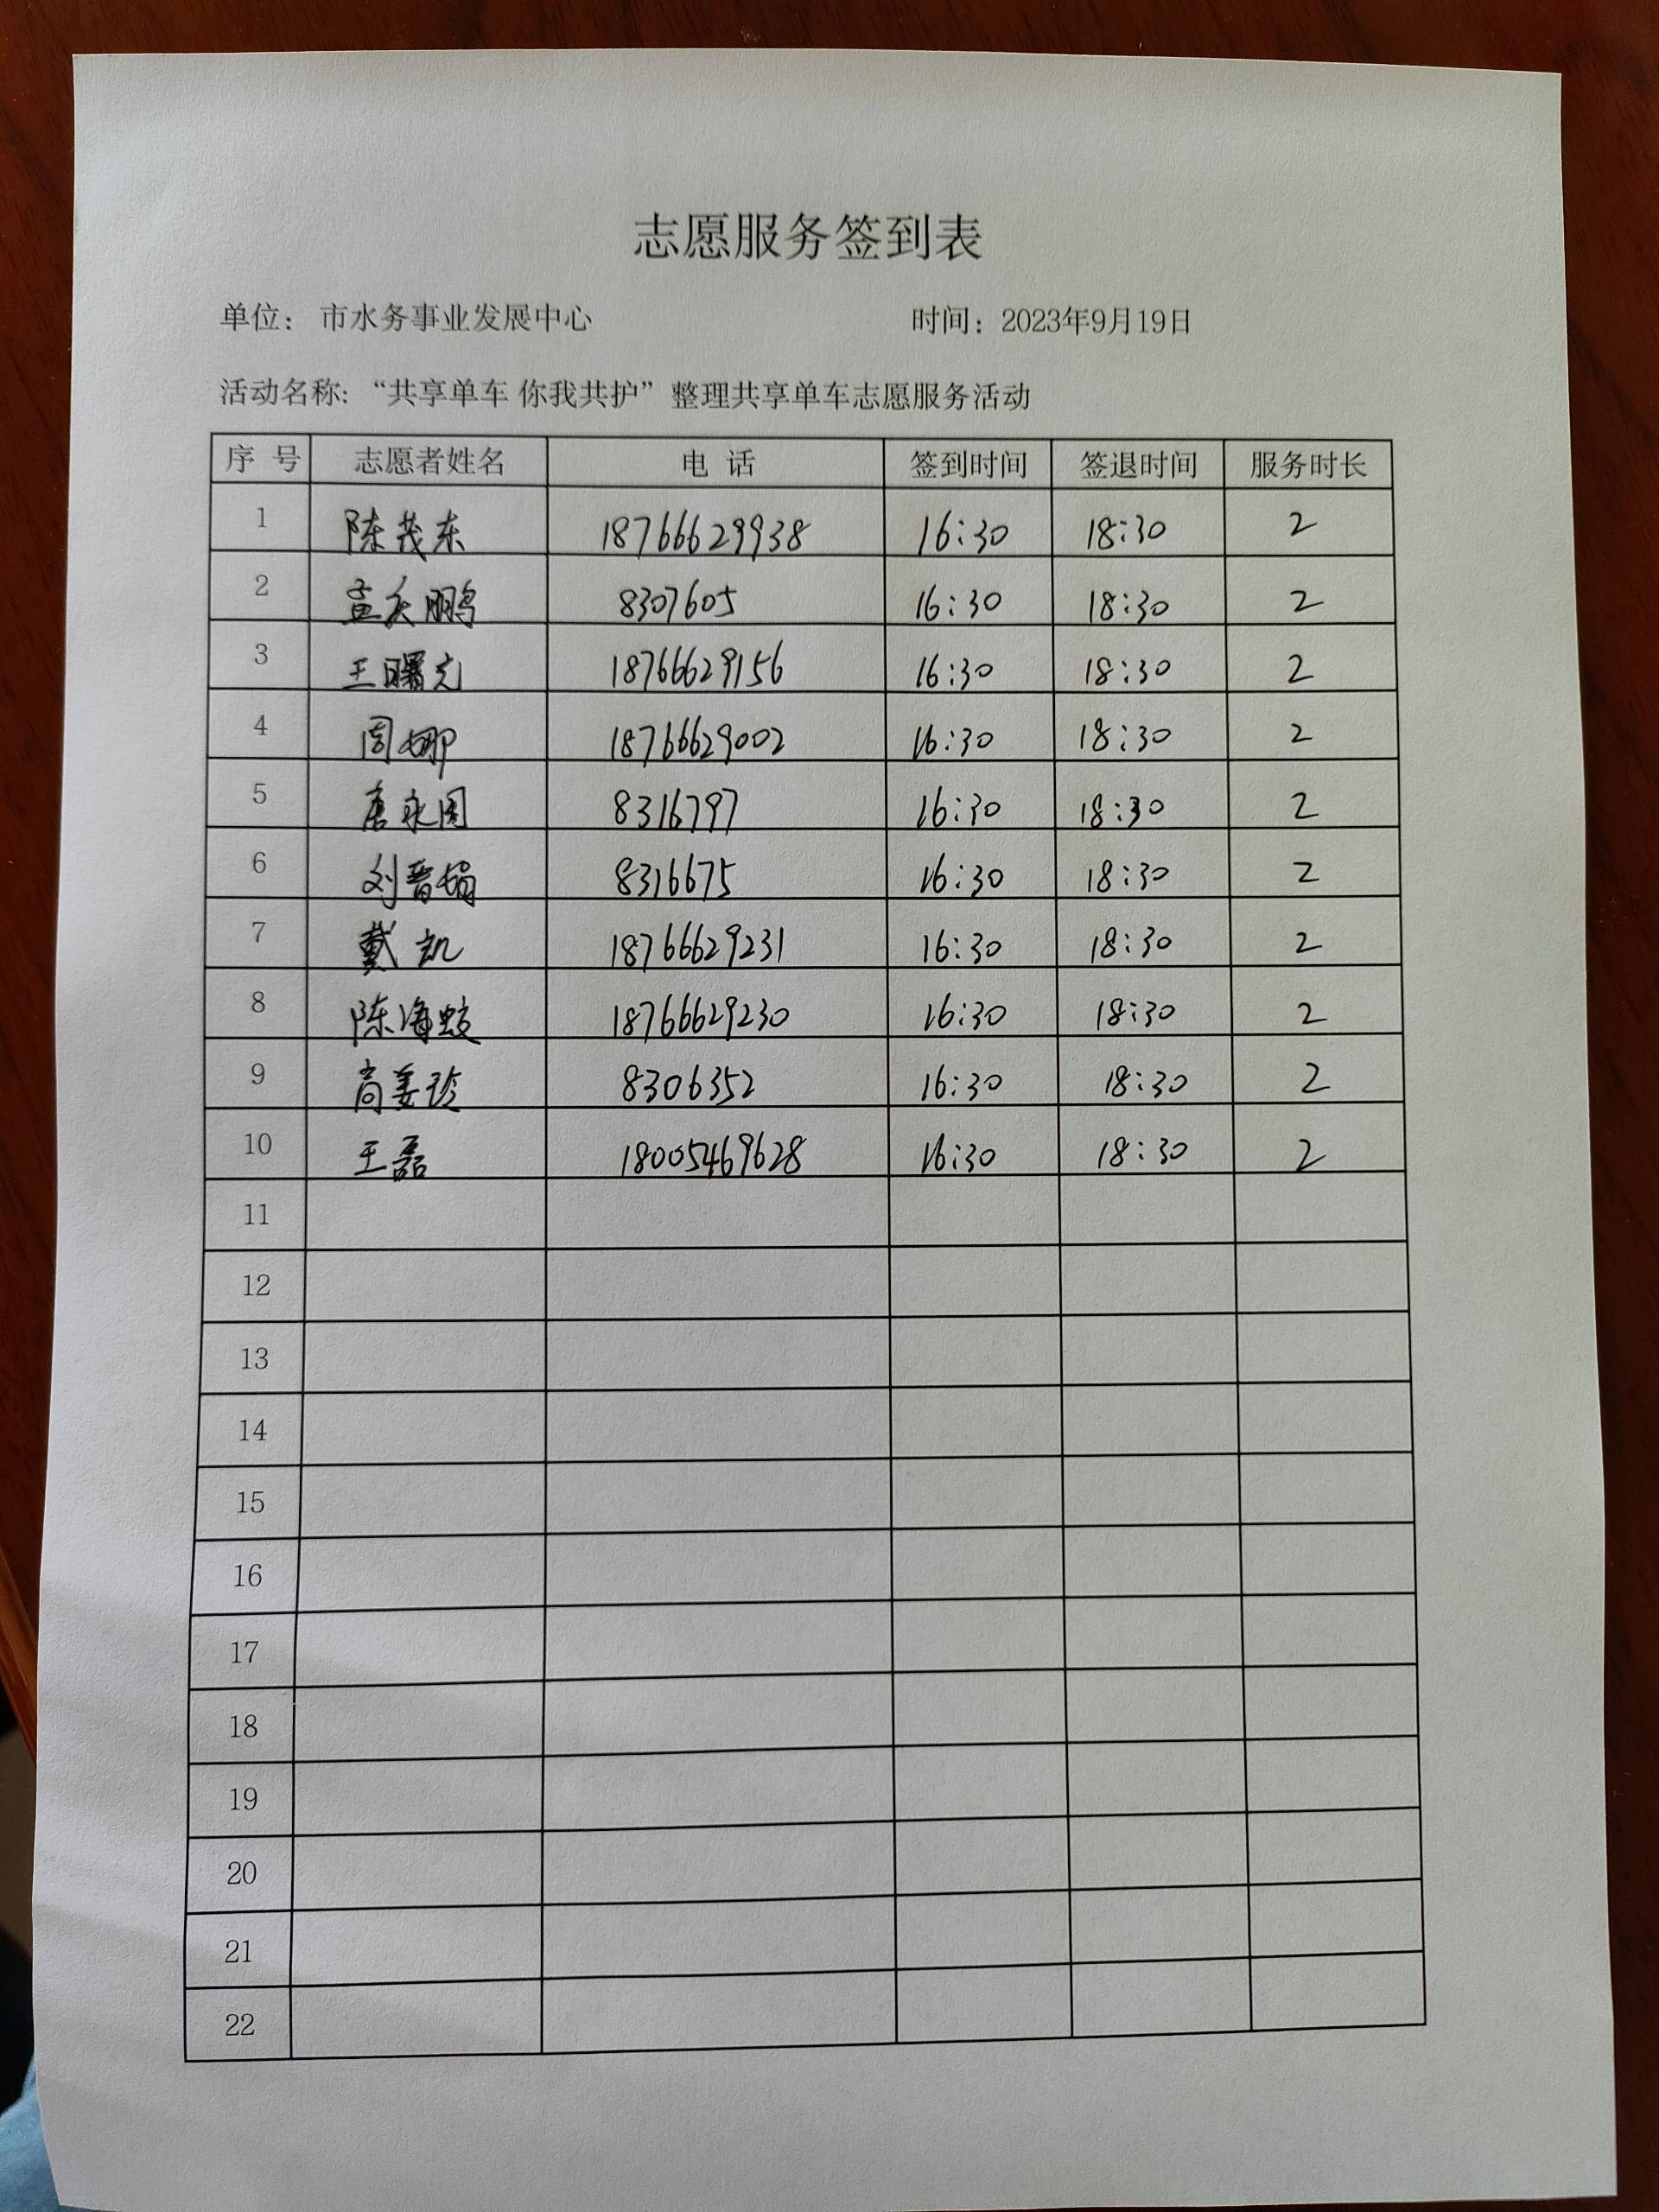 志愿服务签到表
单位： 市水务事业发展中心 时间：2023年9月19日
活动名称：“共享单车 你我共护”整理共享单车志愿服务活动
序 号 志愿者姓名 电 话 签到时间 签退时间 服务时长
1 陈茂东 18766629938 16:30 18:30 2
2 孟庆鹏 8307605 16:30 18:30 2
3 王曙光 18766629156 16:30 18:30 2
4 周娜 18766629002 16:30 18:30 2
5 唐永周 8316797 16:30 18:30 2
6 刘晋娟 8316675 16:30 18:30 2
7 戴凯 18766629231 16:30 18:30 2
8 陈海蛟 18766629230 16:30 18:30 2
9 8306352 16:30 18:30 2
10 王磊 18005469628 16:30 18:30 2
11
12
13
14
15
16
17
18
19
20
21
22